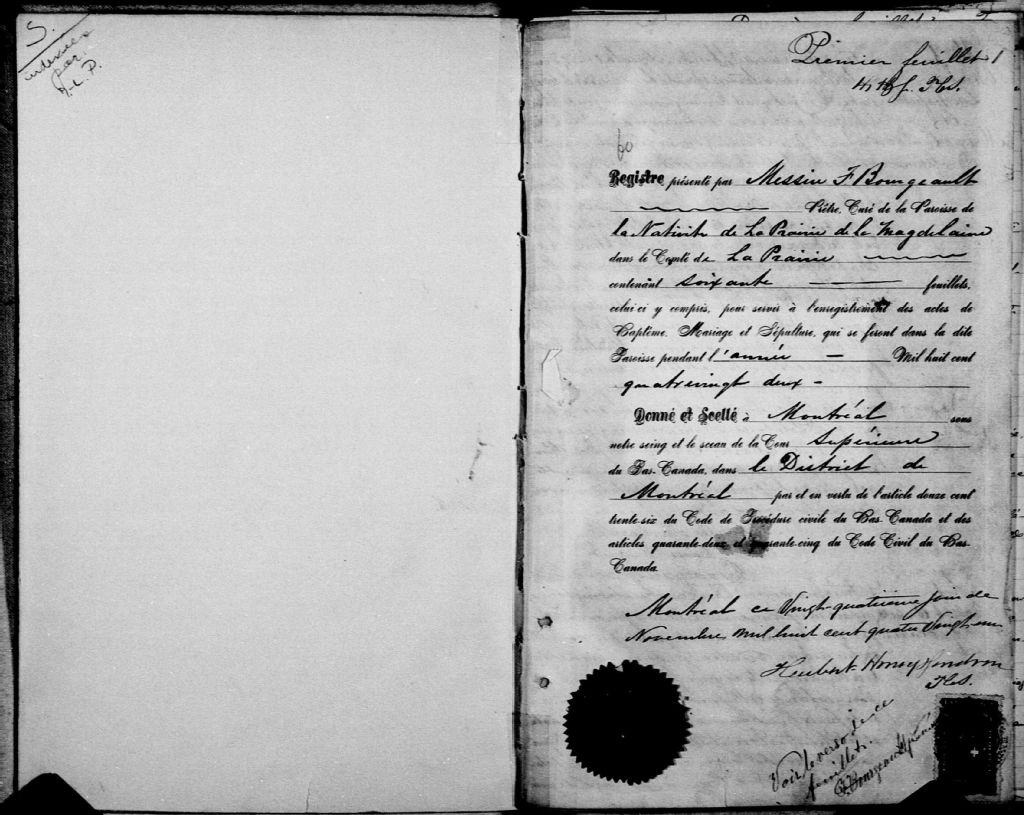 S.
indexées
par
H.L.P.
Premier feuillet 1
60
Registre présenté par Messire F Bourgeault
Prêtre, Curé de la Paroisse de
la Nativité de La Prairie de la Magdelaine
dans le Comté de La Prairie
contenant soixante feuillets,
celui-ci y compris, pour servir à l'enregistrement des actes de
Baptême, Mariage et Sépulture, qui se feront dans la dite
Paroisse pendant l'année — Mil huit cent
quatrevingt deux -
Donné et Scellé à Montréal sous
notre seing et le sceau de la Cour Supérieure
du Bas-Canada, dans le District de
Montréal par et en vertu de l'article douze cent
trente-six du Code de Procédure civile du Bas-Canada et des
articles quarante-deux et quarante-cinq du Code Civil du Bas-
Canada.
Montréal ce Vingt-quatrieme jour de
Novembre mil huit cent quatre Vingt-un
Voir le verso de ce
feuillet.
Bourgeault